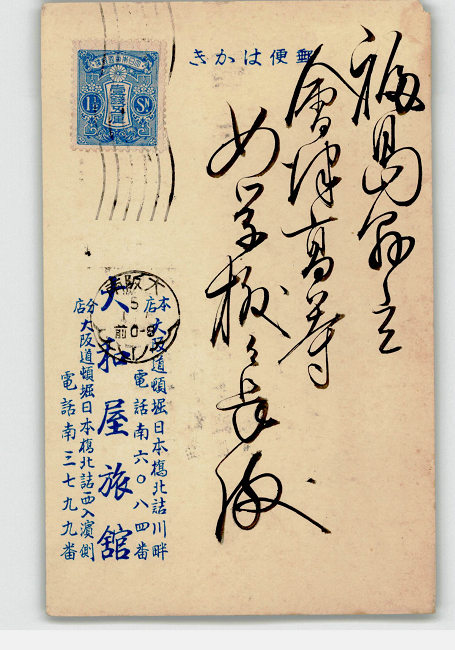 郵便はかき
福島縣立
會津髙等
女学校々長殿
1½ Sn
大阪
5
前0-8
本店 大阪道頓堀日本橋北詰川畔
電話南六〇八四番
大和屋旅舘
分店 大阪道頓堀日本橋北詰西入濱側
電話南三七九九番